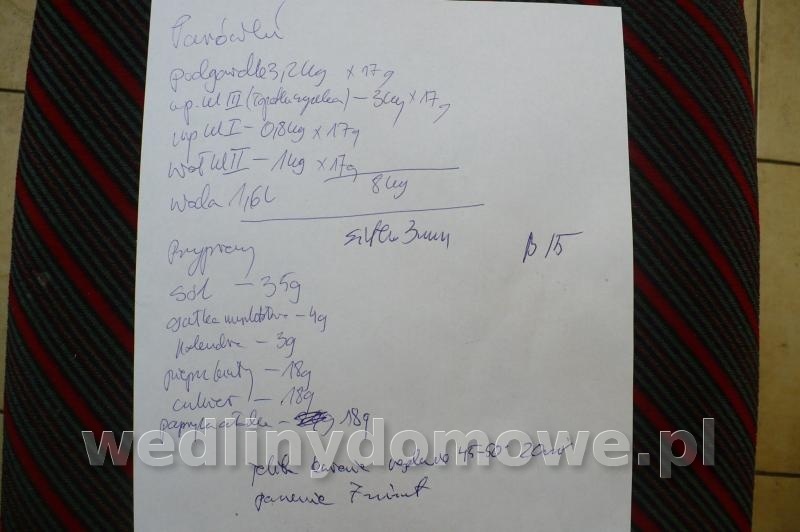 Parówki
podgardle 3,2kg x 17g
wp. kl III (golonka) – 3kg x 17g
wp kl I – 0,8kg x 17g
woł kl II – 1kg x 17g
8kg
woda 1,6l
sitko 3mm
B 15
Przyprawy
sól – 35g
gałka muszkatołowa – 4g
kolendra – 3g
pieprz biały – 18g
cukier – 18g
papryka słodka – 18g
jelita baranie wędzenie 45-50° 20min
parzenie 7 minut
wedlinydomowe.pl